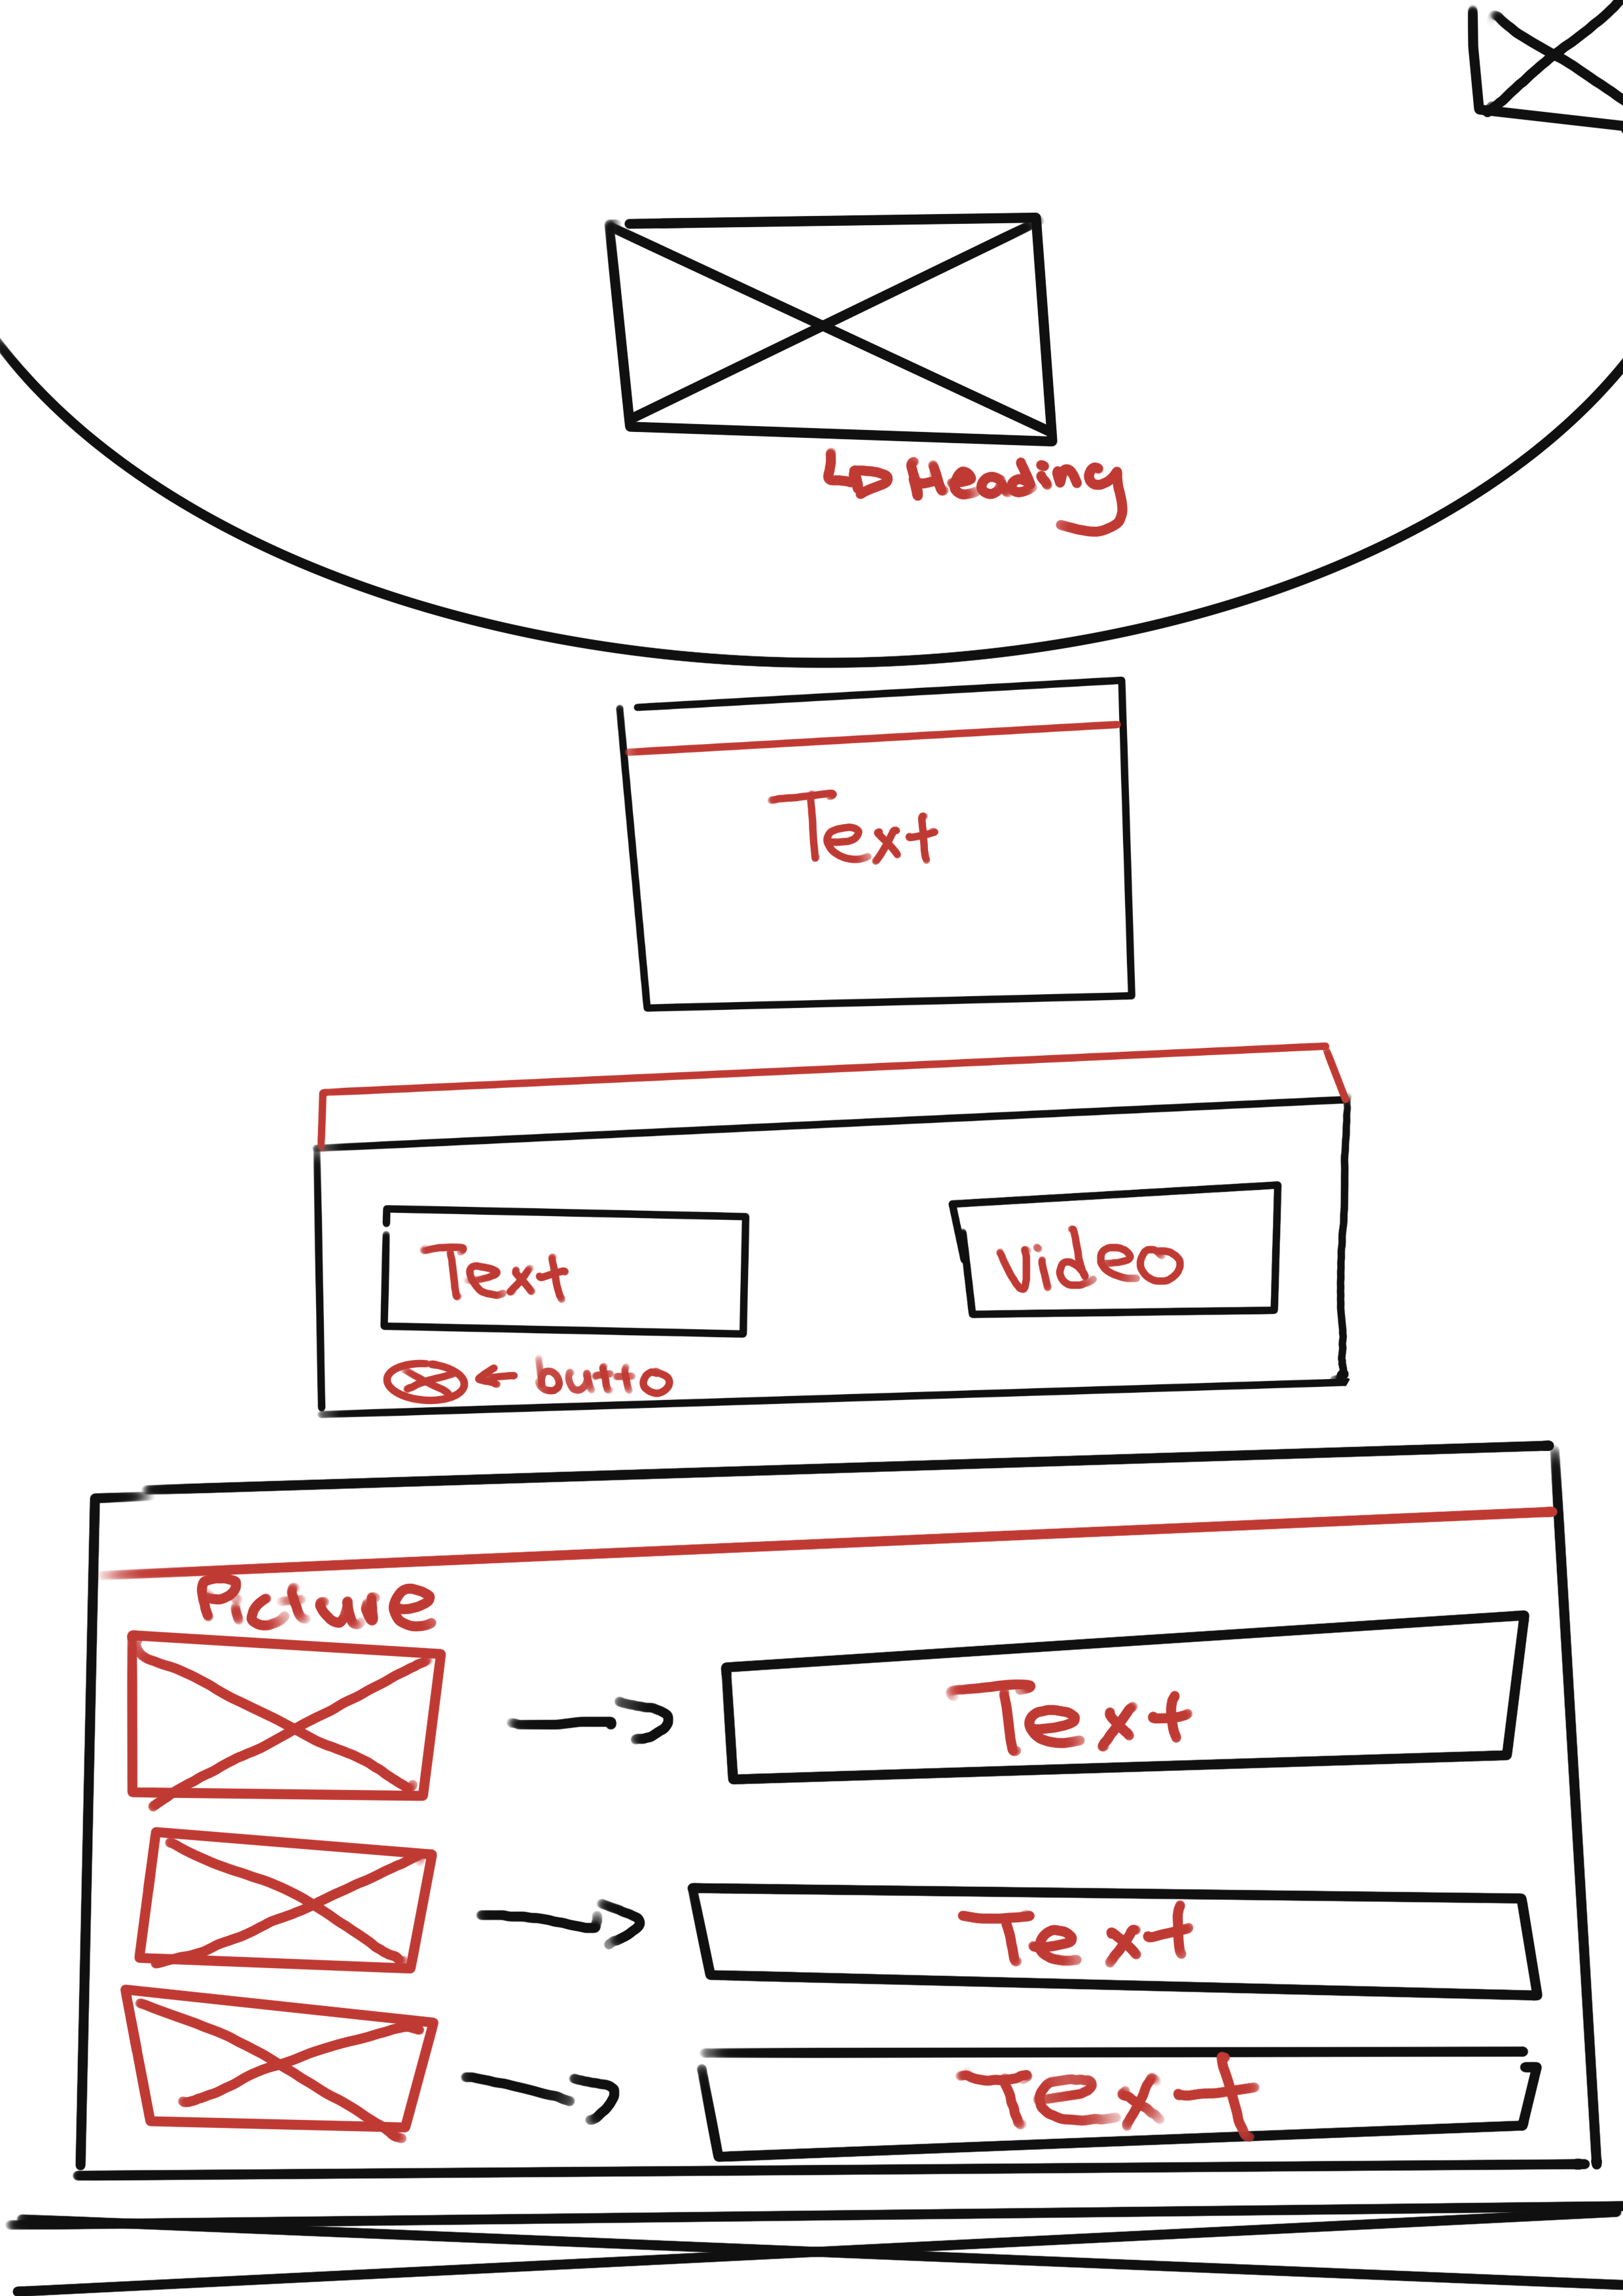 Heading
Text
Text
Video
butto
Picture
Text
Text
Text